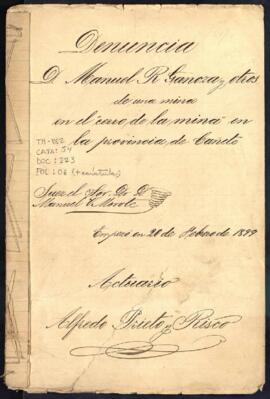 Denuncia
D. Manuel R. Ganoza y otros
de una mina
en el cerro de la mina en
la provincia de Cañete
TH-882
CAJA: 54
DOC: 223
FOL: 08 (+ carátula)
Juez el Sor. Dr. D.
Manuel V. Morote
Empezó en 20 de Febrero de 1899
Actuario
Alfredo Prieto y Risco